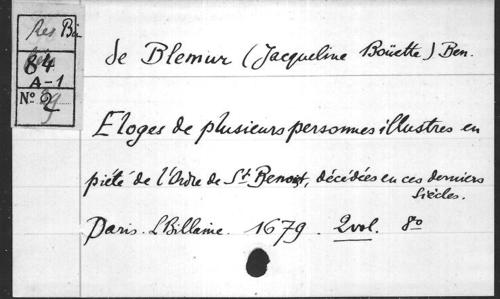 Res
84
A-1
Nº 2
de Blemur (Jacqueline Boüette) Ben.
Eloges de plusieurs personnes illustres en
piété de l'Ordre de St Benoist, décédées en ces derniers
Siècles.
Paris. L Billaine. 1679. 2 vol. 8º